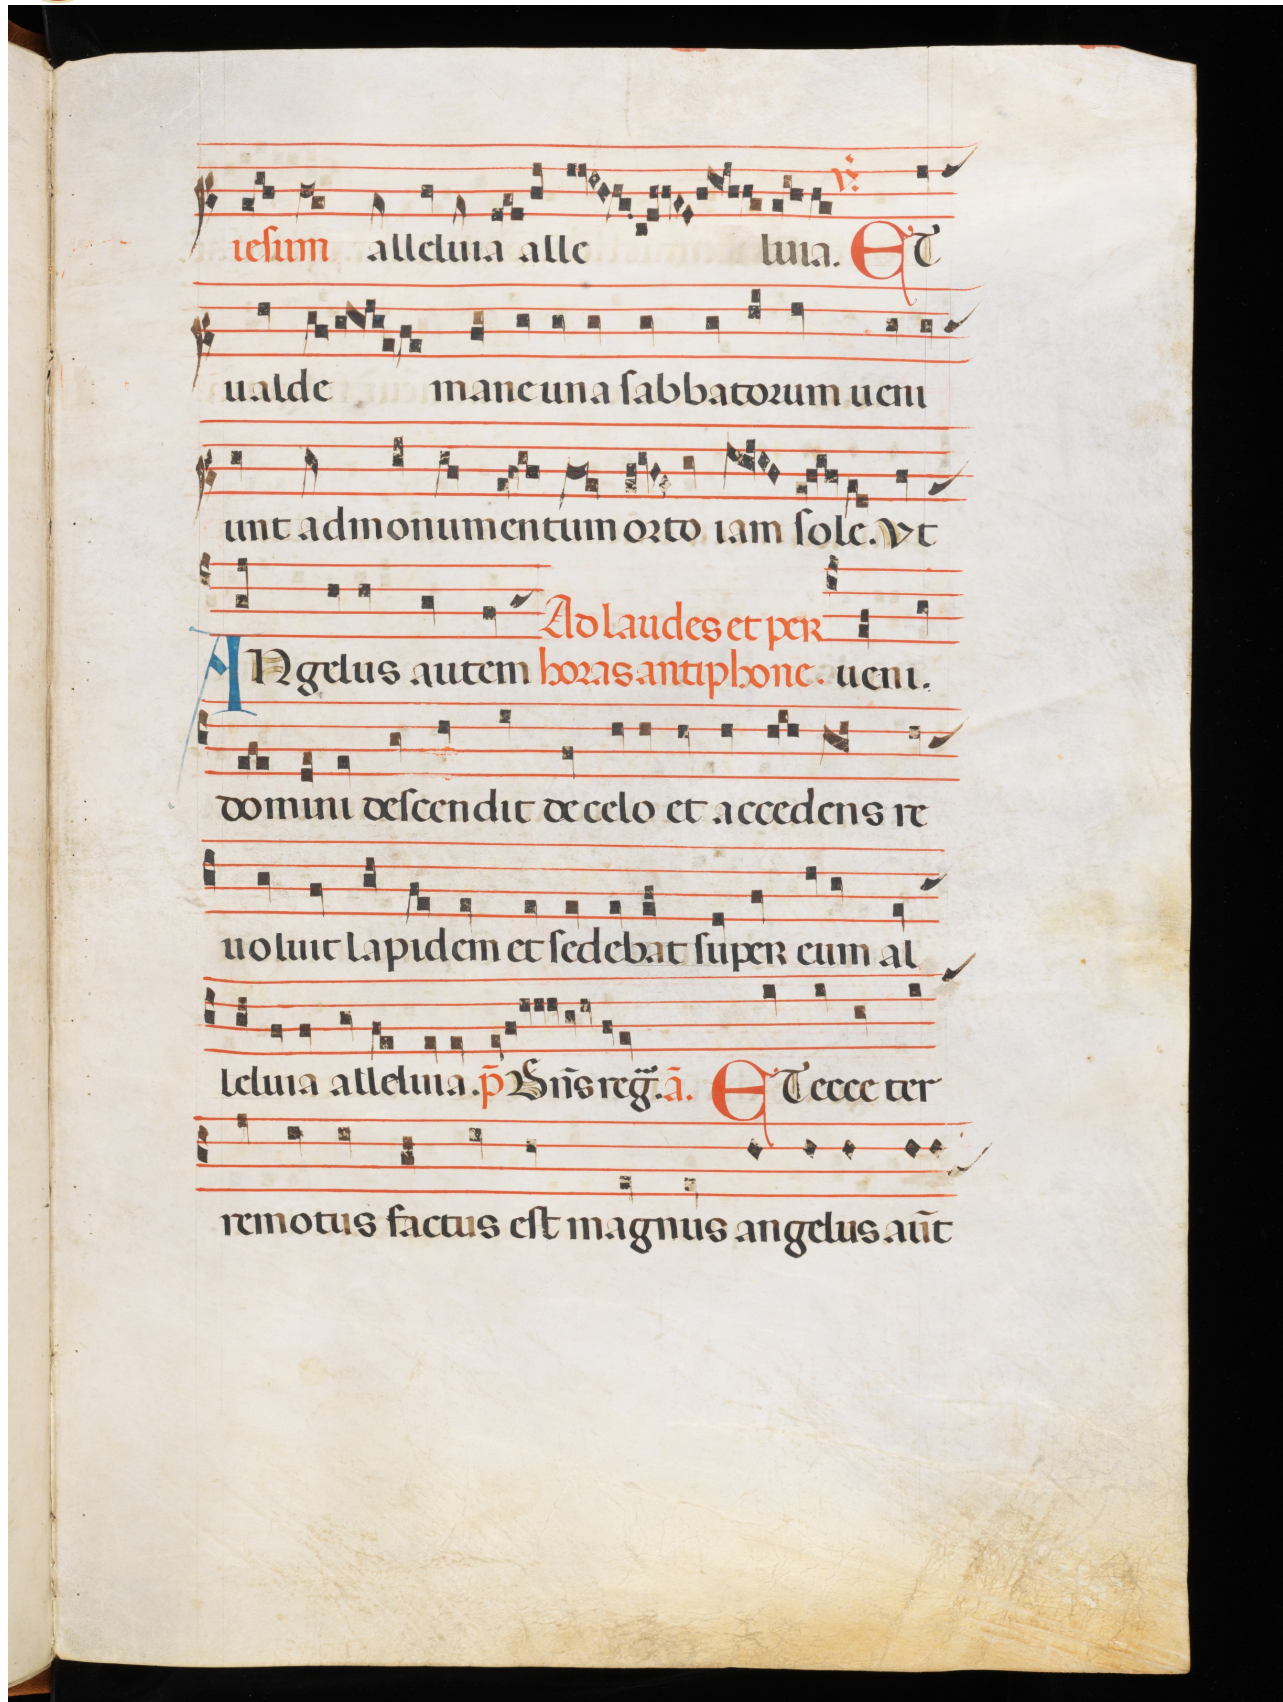 iesum alleluia alle luia. ℣ ET
ualde mane una sabbatorum ueni
unt ad monumentum orto iam sole. Vt
Ad laudes et per
ANgelus autem horas antiphone. ueni.
domini descendit de celo et accedens re
uoluit lapidem et sedebat super eum al
leluia alleluia. p̄ Dn̄s reg̃. ã. ET ecce ter
remotus factus est magnus angelus aūt